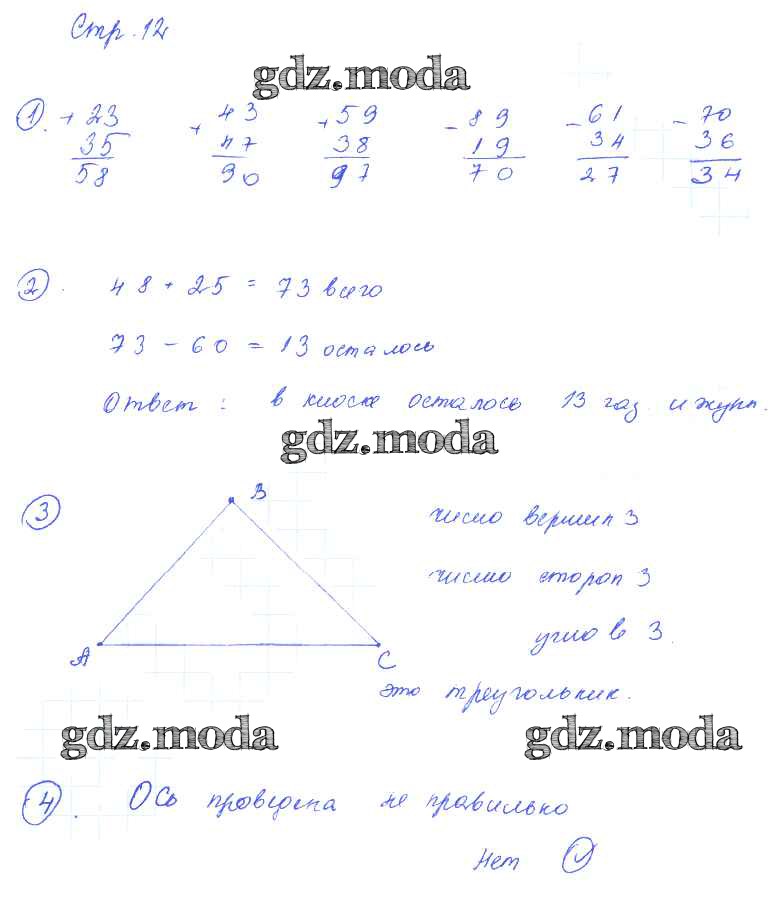 Стр. 12
gdz.moda
1. + 23 + 43 + 59 - 89 - 61 - 70
35 47 38 19 34 36
58 90 97 70 27 34
2. 48 + 25 = 73 всего
73 - 60 = 13 осталось
Ответ: в киоске осталось 13 газ. и журн.
gdz.moda
3 B число вершин 3
число сторон 3
углов 3.
A C
это треугольник.
gdz.moda gdz.moda
4. Ось проведена не правильно
Нет